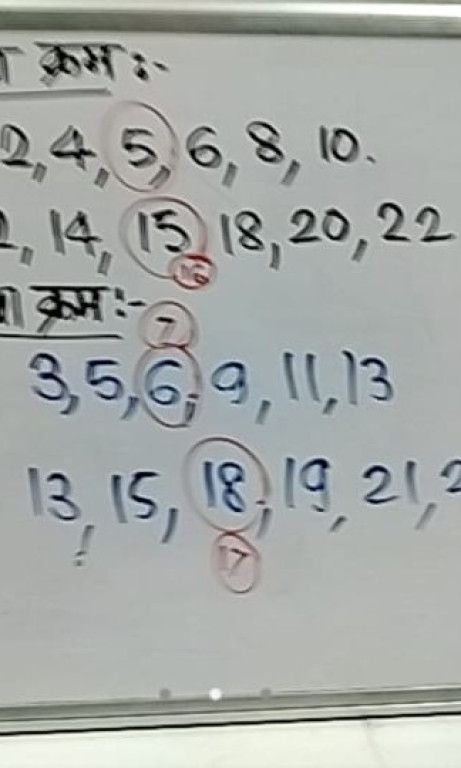 क्रम :-
2, 4, 5, 6, 8, 10.
14, 15, 18, 20, 22
16
क्रम :-
7
3, 5, 6, 9, 11, 13
13, 15, 18, 19, 21,
17